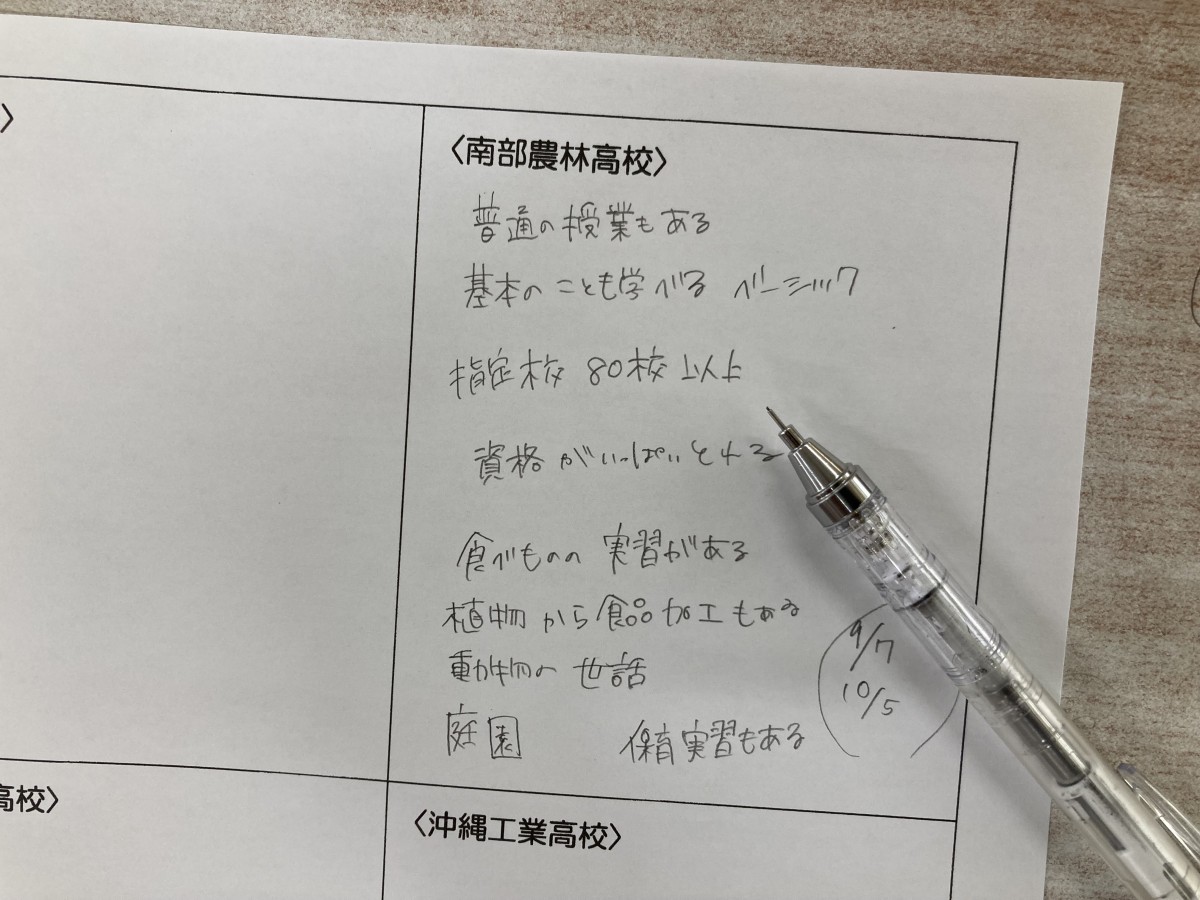 〉
〈南部農林高校〉
普通の授業もある
基本のことも学べる ベーシック
指定校 80校以上
資格がいっぱいとれる
食べものの 実習がある
植物から食品加工もある
動物の世話
9/7
10/5
庭園 保育実習もある
高校〉
〈沖縄工業高校〉